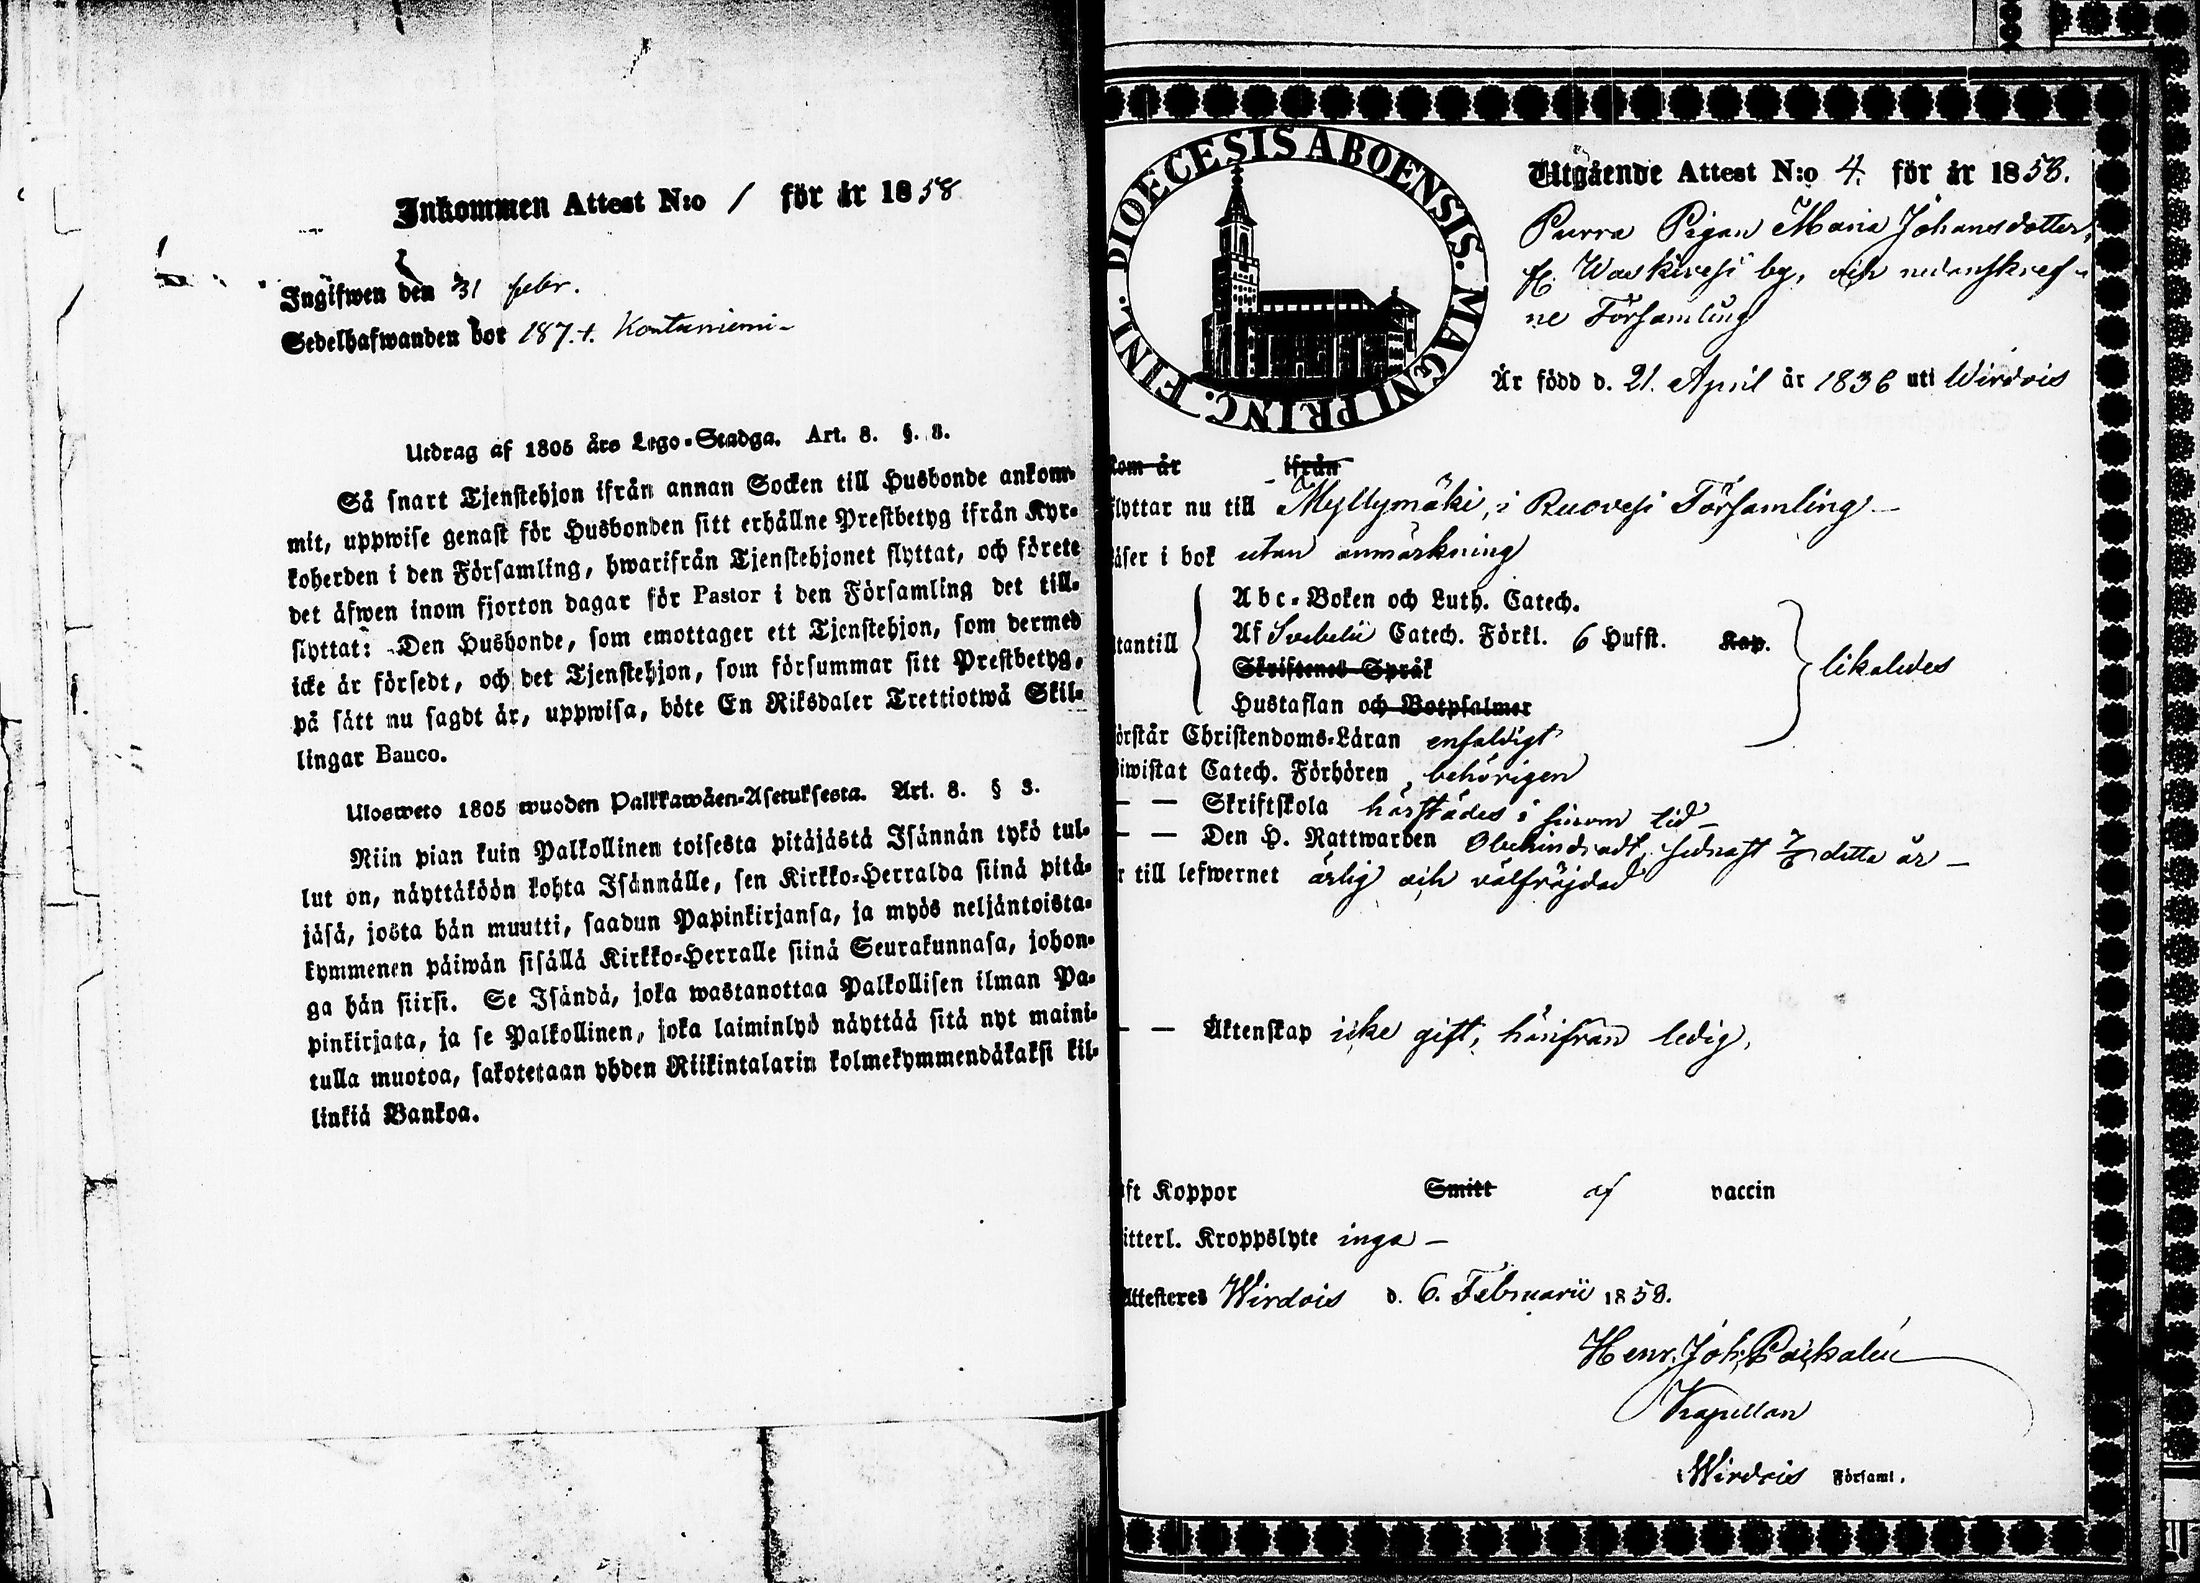 Inkommen Attest N:o 1 för år 1858
Ingifwen den 31 febr.
Sedelhafwanden bor 187. t. Kontuniemi -
Utdrag af 1805 års Lego-Stadga. Art. 8. §. 3.
Så snart Tjenstehjon ifrån annan Socken till Husbonde ankom-
mit, uppwise genast för Husbonden sitt erhållne Prestbetyg ifrån Kyr-
koherden i den Församling, hwarifrån Tjenstehjonet flyttat, och förete
det äfwen inom fjorton dagar för Pastor i den Församling det till-
flyttat: Den Husbonde, som emottager ett Tjenstehjon, som dermed
icke är försedt, och det Tjenstehjon, som försummar sitt Prestbetyg,
på sätt nu sagdt är, uppwisa, böte En Riksdaler Trettiotwå Skil-
lingar Banco.
Uloswеto 1805 wuoden Palkkawäen-Asetuksesta. Art. 8. § 3.
Niin pian kuin Palkollinen toisesta pitäjästä Isännän tykö tul-
lut on, näyttäköön kohta Isännälle, sen Kirkko-Herralda siinä pitä-
jäsä, josta hän muutti, saadun Papinkirjansa, ja myös neljäntoista-
kymmenen päiwän sisällä Kirkko-Herralle siinä Seurakunnasa, johon-
ga hän siirsi. Se Isändä, joka wastanottaa Palkollisen ilman Pa-
pinkirjata, ja se Palkollinen, joka laiminlyö näyttää sitä nyt maini-
tulla muotoa, sakotetaan yhden Riikintalarin kolmekymmendäkaksi kil-
linkiä Bankoa.
DIOECESIS ABOENSIS. MAGNI PRINC. FINL.
Utgående Attest N:o 4. för år 1858.
Pigan Maria Johansdotter,
fr. Waskivesi by, och nedanskref-
ne Församling
Är född d. 21. April år 1836 uti Wirdois
kom år ifrån
flyttar nu till Myllymäki, i Ruovesi Församling -
läser i bok utan anmärkning
Abc-Boken och Luth. Catech.
utantill Af Svebelii Catech. Förkl. 6 Hufst. Kap. likaledes
Skriftenes Språk
Hustaflan och Botpsalmer
förstår Christendoms-Läran enfaldigt
biwistat Catech. Förhören behörigen
— — Skriftskola härstädes i sinom tid -
— — Den H. Nattwarden Obehindradt, sednast 7/6 detta år -
är till lefwernet ärlig och välfräjdad
— — Äktenskap icke gift; härifrån ledig.
haft Koppor Smitt af vaccin
witterl. Kroppslyte inga -
Attesteres Wirdois d. 6. Februarii 1858.
Henr. Joh.
Kapellan
i Wirdois Församl.